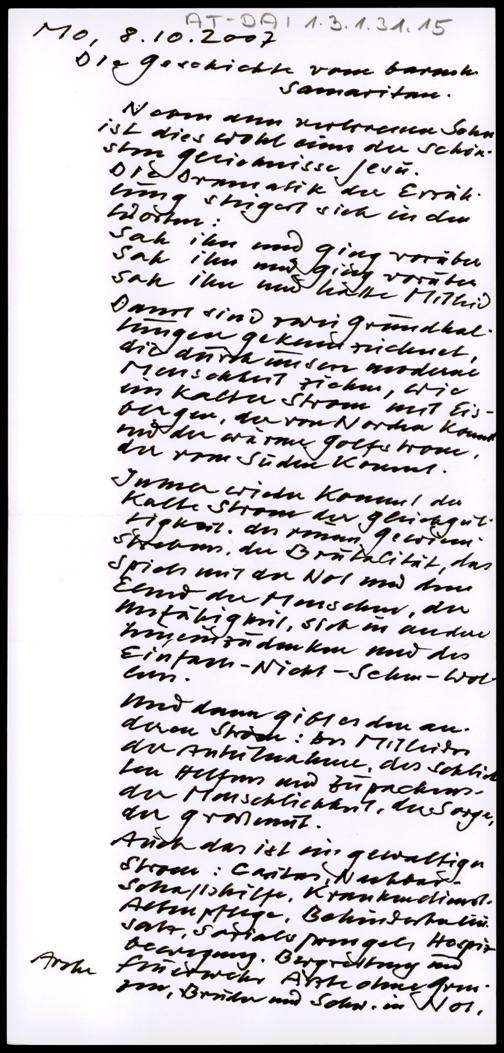 AT-DAI 1.3.1.31.15
Mo, 8.10.2007
Die Geschichte vom barmh.
Samaritan.
Neben dem verlorenen Sohn
ist dies wohl eines der schön-
sten Gleichnisse Jesu.
Die Dramatik der Erzäh-
lung steigert sich in den
Worten:
Sah ihn und ging vorüber
Sah ihn und ging vorüber
Sah ihn und hatte Mitleid
Damit sind zwei Grundhal-
tungen gekennzeichnet,
die durch unsere moderne
Menschheit ziehen, wie
ein kalter Strom mit Eis-
bergen, der von Norden kommt
und der warme Golfstrom,
der vom Süden kommt.
Immer wieder kommt der
kalte Strom der Gleichgül-
tigkeit, des reinen Gewinn-
strebens, der Brutalität, das
Spiel mit der Not und dem
Elend der Menschen, der
Unfähigkeit, sich in andere
hineinzudenken und des
Einfach-Nicht-Sehen-Wol-
lens.
Und dann gibt es den an-
deren Strom: des Mitleides
der Anteilnahme, des schlich
ten Helfens und Zupackens-
der Menschlichkeit, der Sorge,
der Großmut.
Auch das ist ein gewaltiger
Strom: Caritas, Nachbar-
schaftshilfe, Krankendienst-
Altenpflege, Behinderten
Sozialsprengel, Hospiz
bewegung, Bergrettung und
Arche Feuerwehr Ärzte ohne Gren-
zen, Bruder und Schw. in Not,